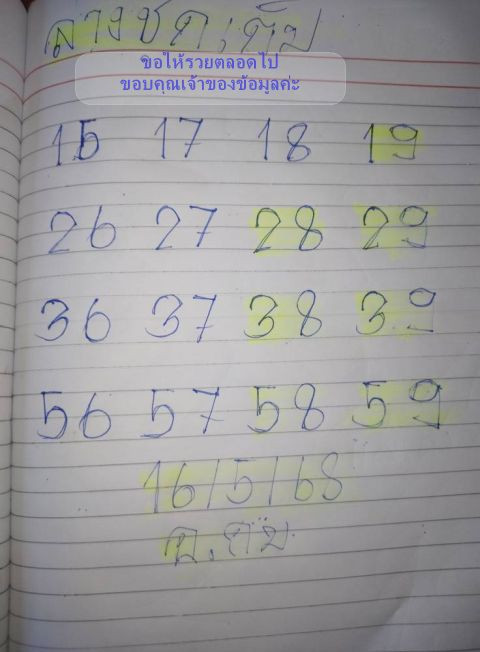 ขอให้รวยตลอดไป
ขอบคุณเจ้าของข้อมูลค่ะ
16 17 18 19
26 27 28 29
36 37 38 39
56 57 58 59
16/5/68